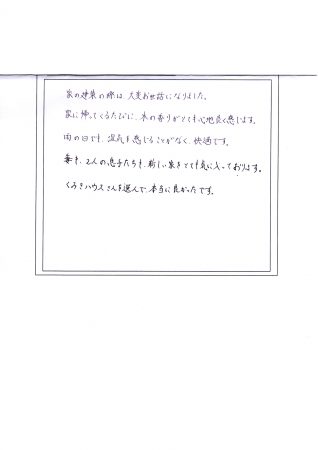 家の建築の際は、大変お世話になりました。
家に帰ってくるたびに、木の香りがとても心地良く感じます。
雨の日でも、湿気を感じることがなく、快適です。
妻も、2人の息子たちも、新しい家をとても気に入っております。
くみきハウスさんを選んで、本当に良かったです。